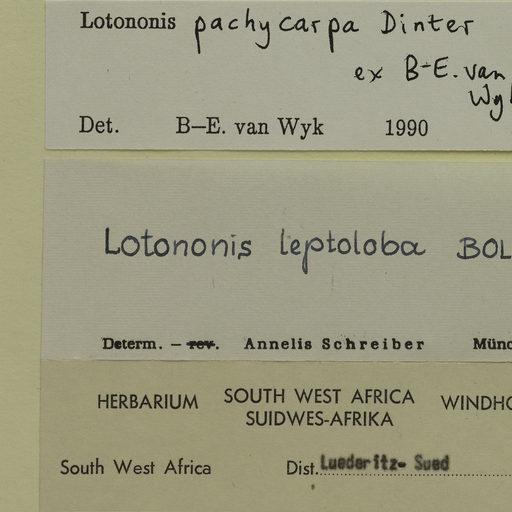 Lotononis pachycarpa Dinter
ex B-E. van
Wyk
Det. B–E. van Wyk 1990
Lotononis leptoloba BOL
Determ. – rev. Annelis Schreiber Münc
HERBARIUM SOUTH WEST AFRICA WINDHO
SUIDWES-AFRIKA
South West Africa Dist. Luederitz- Sued